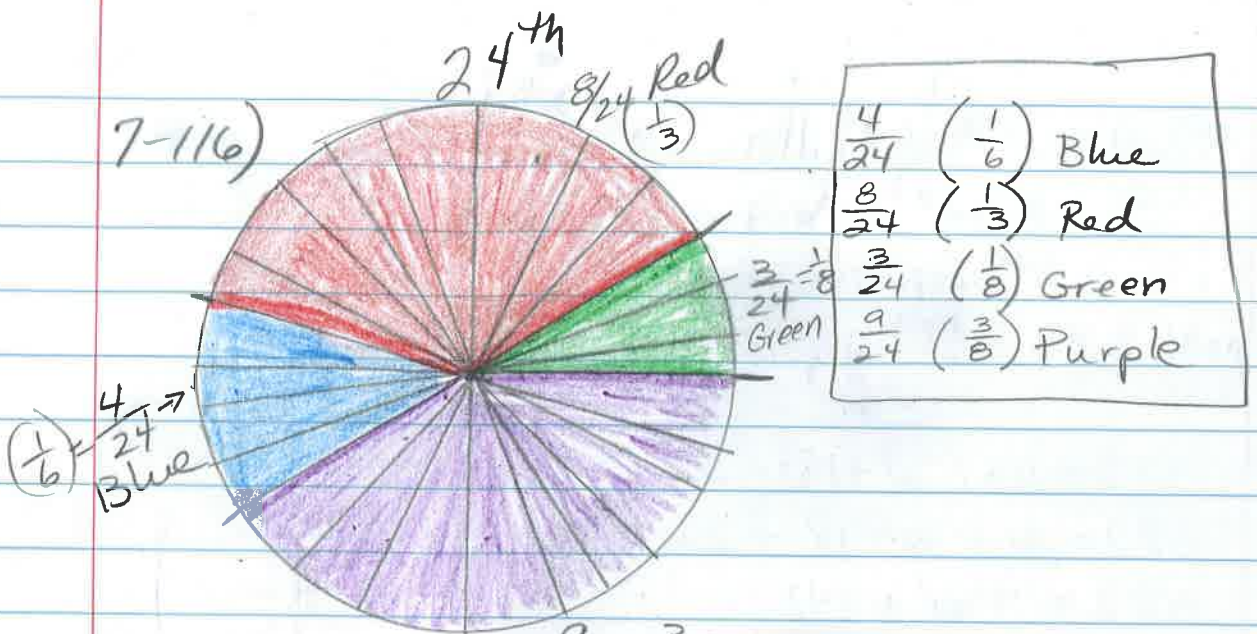 24th
7-116)
8/24 Red
(1/3)
3/24 = 1/8
Green
(1/6) = 4/24 →
Blue
4/24 (1/6) Blue
8/24 (1/3) Red
3/24 (1/8) Green
9/24 (3/8) Purple